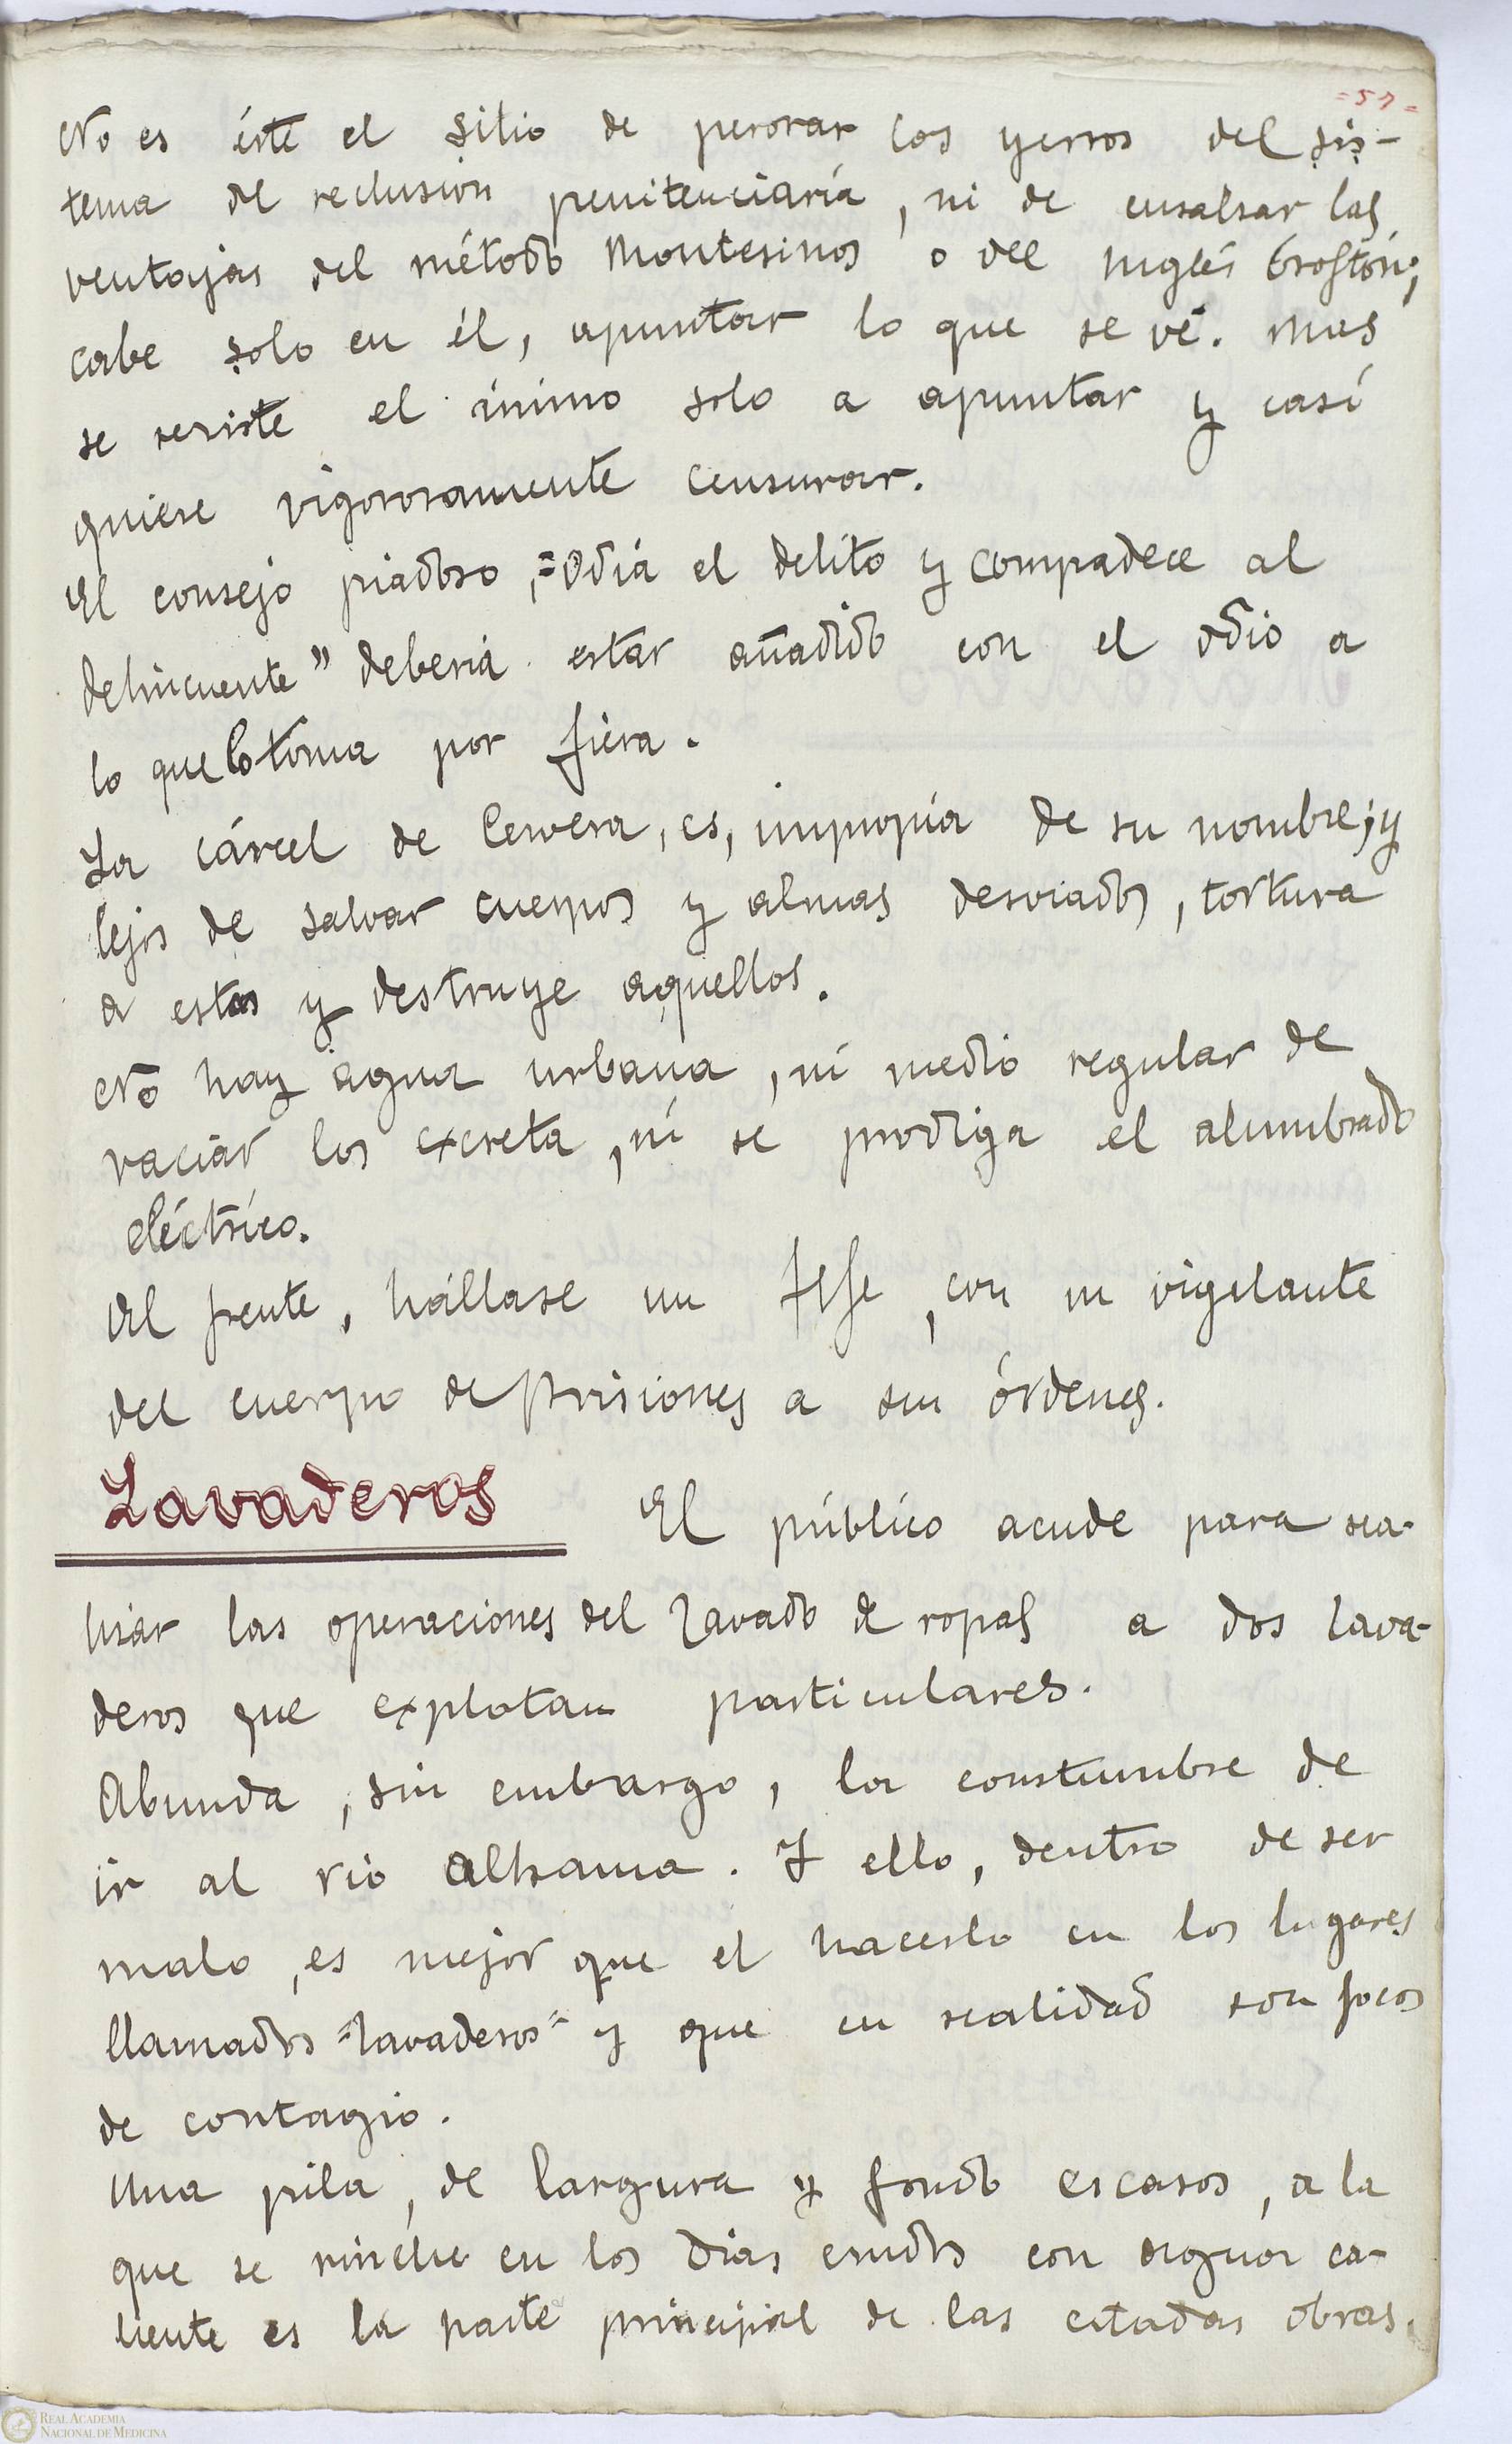 =57=
No es éste el sitio de perorar los yerros del sis-
tema de reclusión penitenciaría, ni de ensalsar las
ventajas del método Montesinos o del Inglés Crofton;
cabe solo en él, apuntar lo que se vé. Mas
se resiste el ánimo solo a apuntar y casí
quiere vigorosamente censurar.
El consejo piadoso, "Odia el delito y compadece al
delincuente" debería estar añadido con el odio a
lo que lo toma por fiera.
La cárcel de Cervera, es, impropia de su nombre; y
lejos de salvar cuerpos y almas desviados, tortura
a estas y destruye aquellos.
No hay agua urbana, ni medio regular de
vaciar los excreta, ni se prodiga el alumbrado
eléctrico.
Al frente, hállase un Jefe, con un vigilante
del cuerpo de Prisiones a sus órdenes.
Lavaderos El público acude para rea-
lizar las operaciones del lavado de ropas a dos lava-
deros que explotan particulares.
Abunda, sin embargo, la constumbre de
ir al rio Alhama. Y ello, dentro de ser
malo, es mejor que el hacerlo en los lugares
llamados "lavaderos" y que en realidad son focos
de contagio.
Una pila, de largura y fondo escasos, a la
que se hinche en los dias crudos con agua ca-
liente es la parte principal de las citadas obras.
REAL ACADEMIA
NACIONAL DE MEDICINA